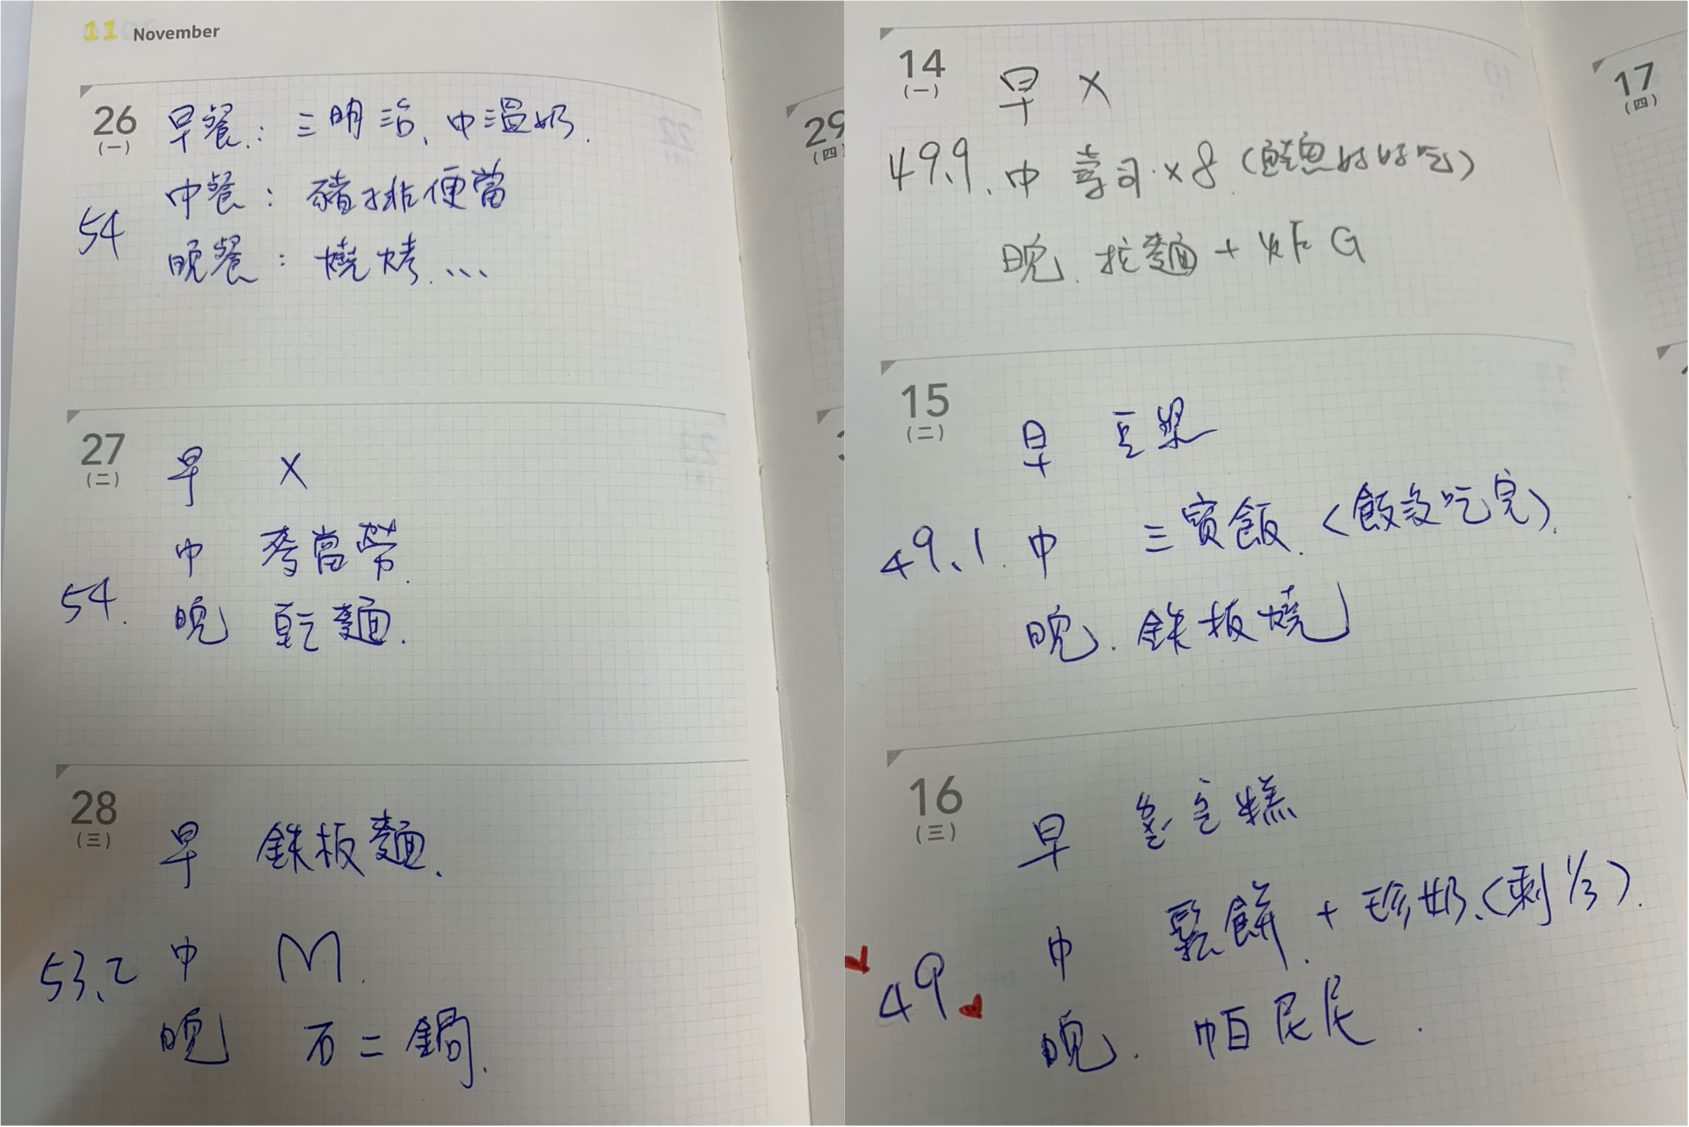 11 November
26
(一)
早餐：三明治、中溫奶.
中餐：豬排便當
54
晚餐：燒烤...
27
(二)
早 X
中 麥當勞.
54.
晚 乾麵.
28
(三)
早 鉄板麵.
53.2 中 M.
晚 石二鍋.
29
(四)
14
(一)
早 X
49.9. 中 壽司 x8 (鮭魚好好吃)
晚. 拉麵 + 炸G
15
(二)
早 豆漿
49.1. 中 三寶飯. (飯沒吃完).
晚. 鉄板燒
16
(三)
早 蘿蔔糕
中 鬆餅. + 珍奶. (剩 1/3).
49
晚. 帕尼尼.
17
(四)